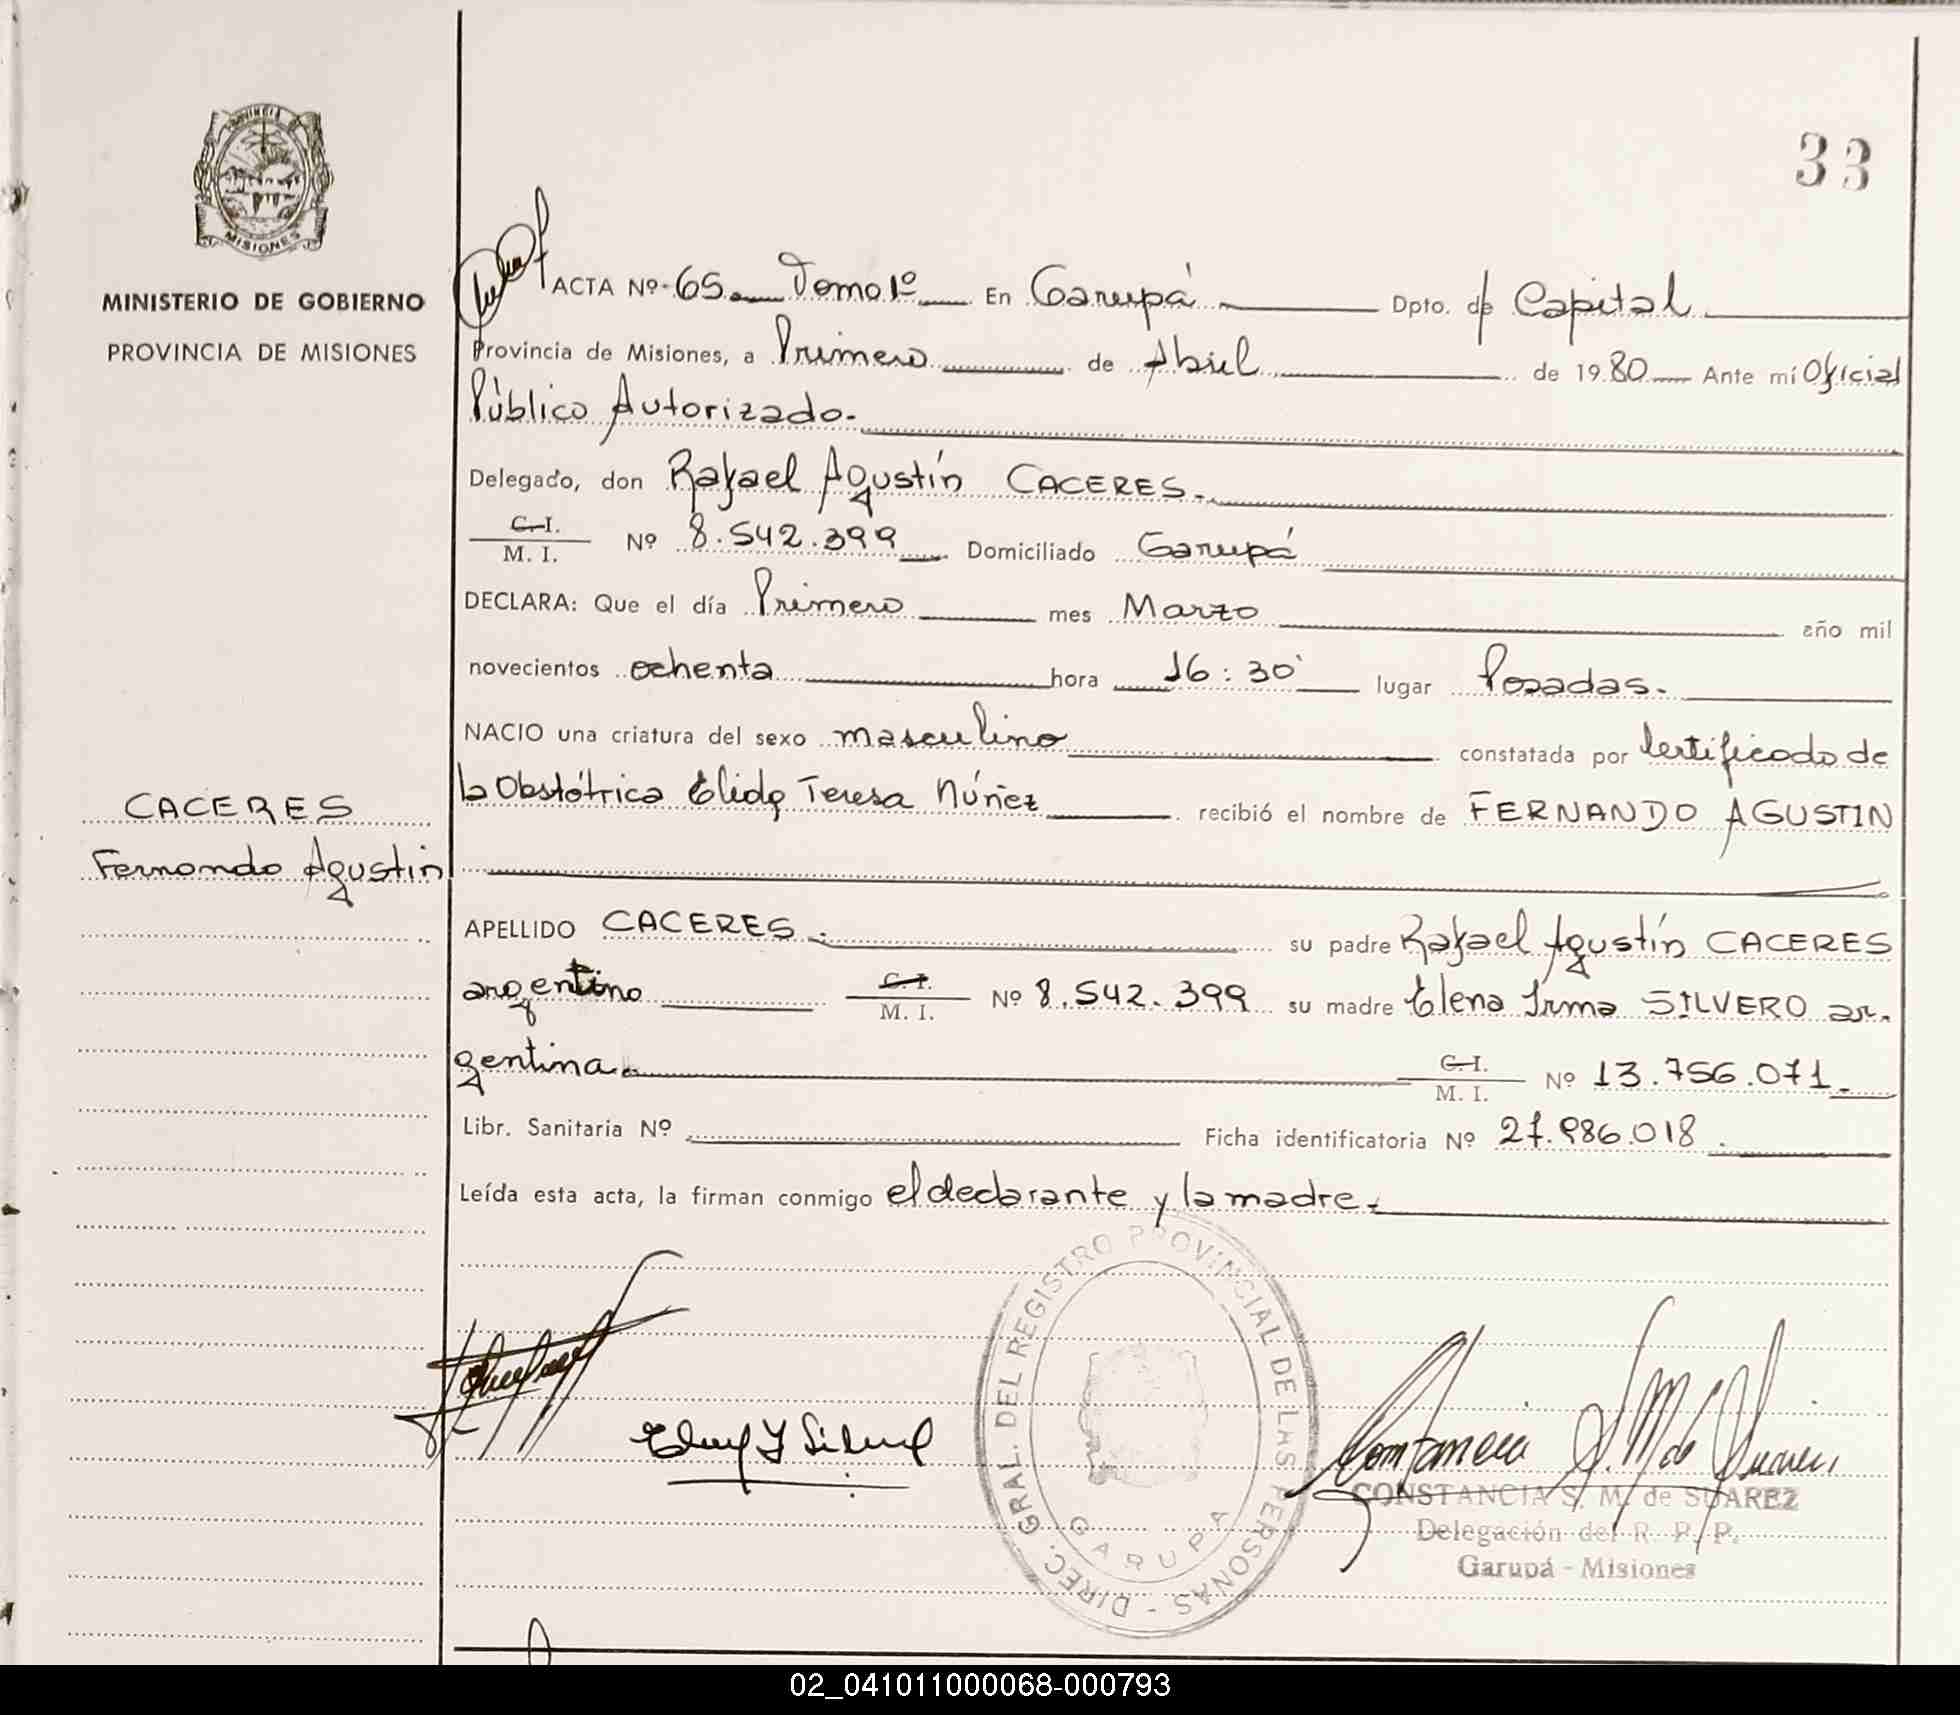 PROVINCIA
MISIONES
MINISTERIO DE GOBIERNO
PROVINCIA DE MISIONES
33
ACTA Nº 65 Tomo 1º En Garupá Dpto. de Capital
Provincia de Misiones, a Primero de Abril de 1980 Ante mí Oficial
Público Autorizado.
Delegado, don Rafael Agustín CACERES.
C. I.
M. I. Nº 8.542.399 Domiciliado Garupá
DECLARA: Que el día Primero mes Marzo año mil
novecientos ochenta hora 16:30 lugar Posadas.
NACIO una criatura del sexo masculino constatada por Certificado de
la Obstétrica Elida Teresa Núñez recibió el nombre de FERNANDO AGUSTIN
CACERES
Fernando Agustin
APELLIDO CACERES. su padre Rafael Agustín CACERES
argentino C. I. M. I. Nº 8.542.399 su madre Elena Irma SILVERO ar-
gentina. C. I. M. I. Nº 13.756.071.
Libr. Sanitaria Nº Ficha identificatoria Nº 27.986.018.
Leída esta acta, la firman conmigo el declarante y la madre.
DIREC. GRAL. DEL REGISTRO PROVINCIAL DE LAS PERSONAS -
GARUPA
Constancia S. M. de Suarez
CONSTANCIA S. M. de SUAREZ
Delegación del R. P. P.
Garupá - Misiones
02_041011000068-000793